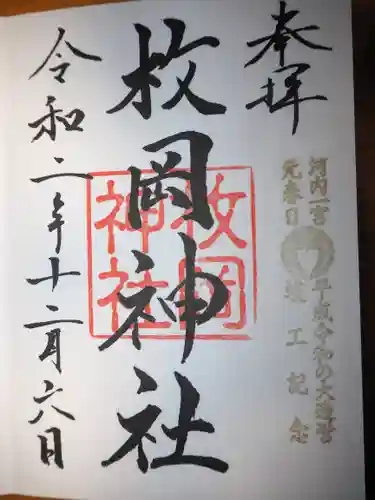 奉拝
河内一宮
元春日
平成令和の大造営
竣工記念
枚岡神社
枚岡
神社
令和二年十二月六日